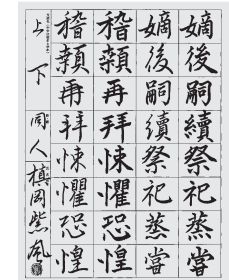 嫡後嗣續祭祀蒸嘗
嫡後嗣續祭祀蒸嘗
稽顙再拜悚懼恐惶
稽顙再拜悚懼恐惶
上下
同人
岡紫風